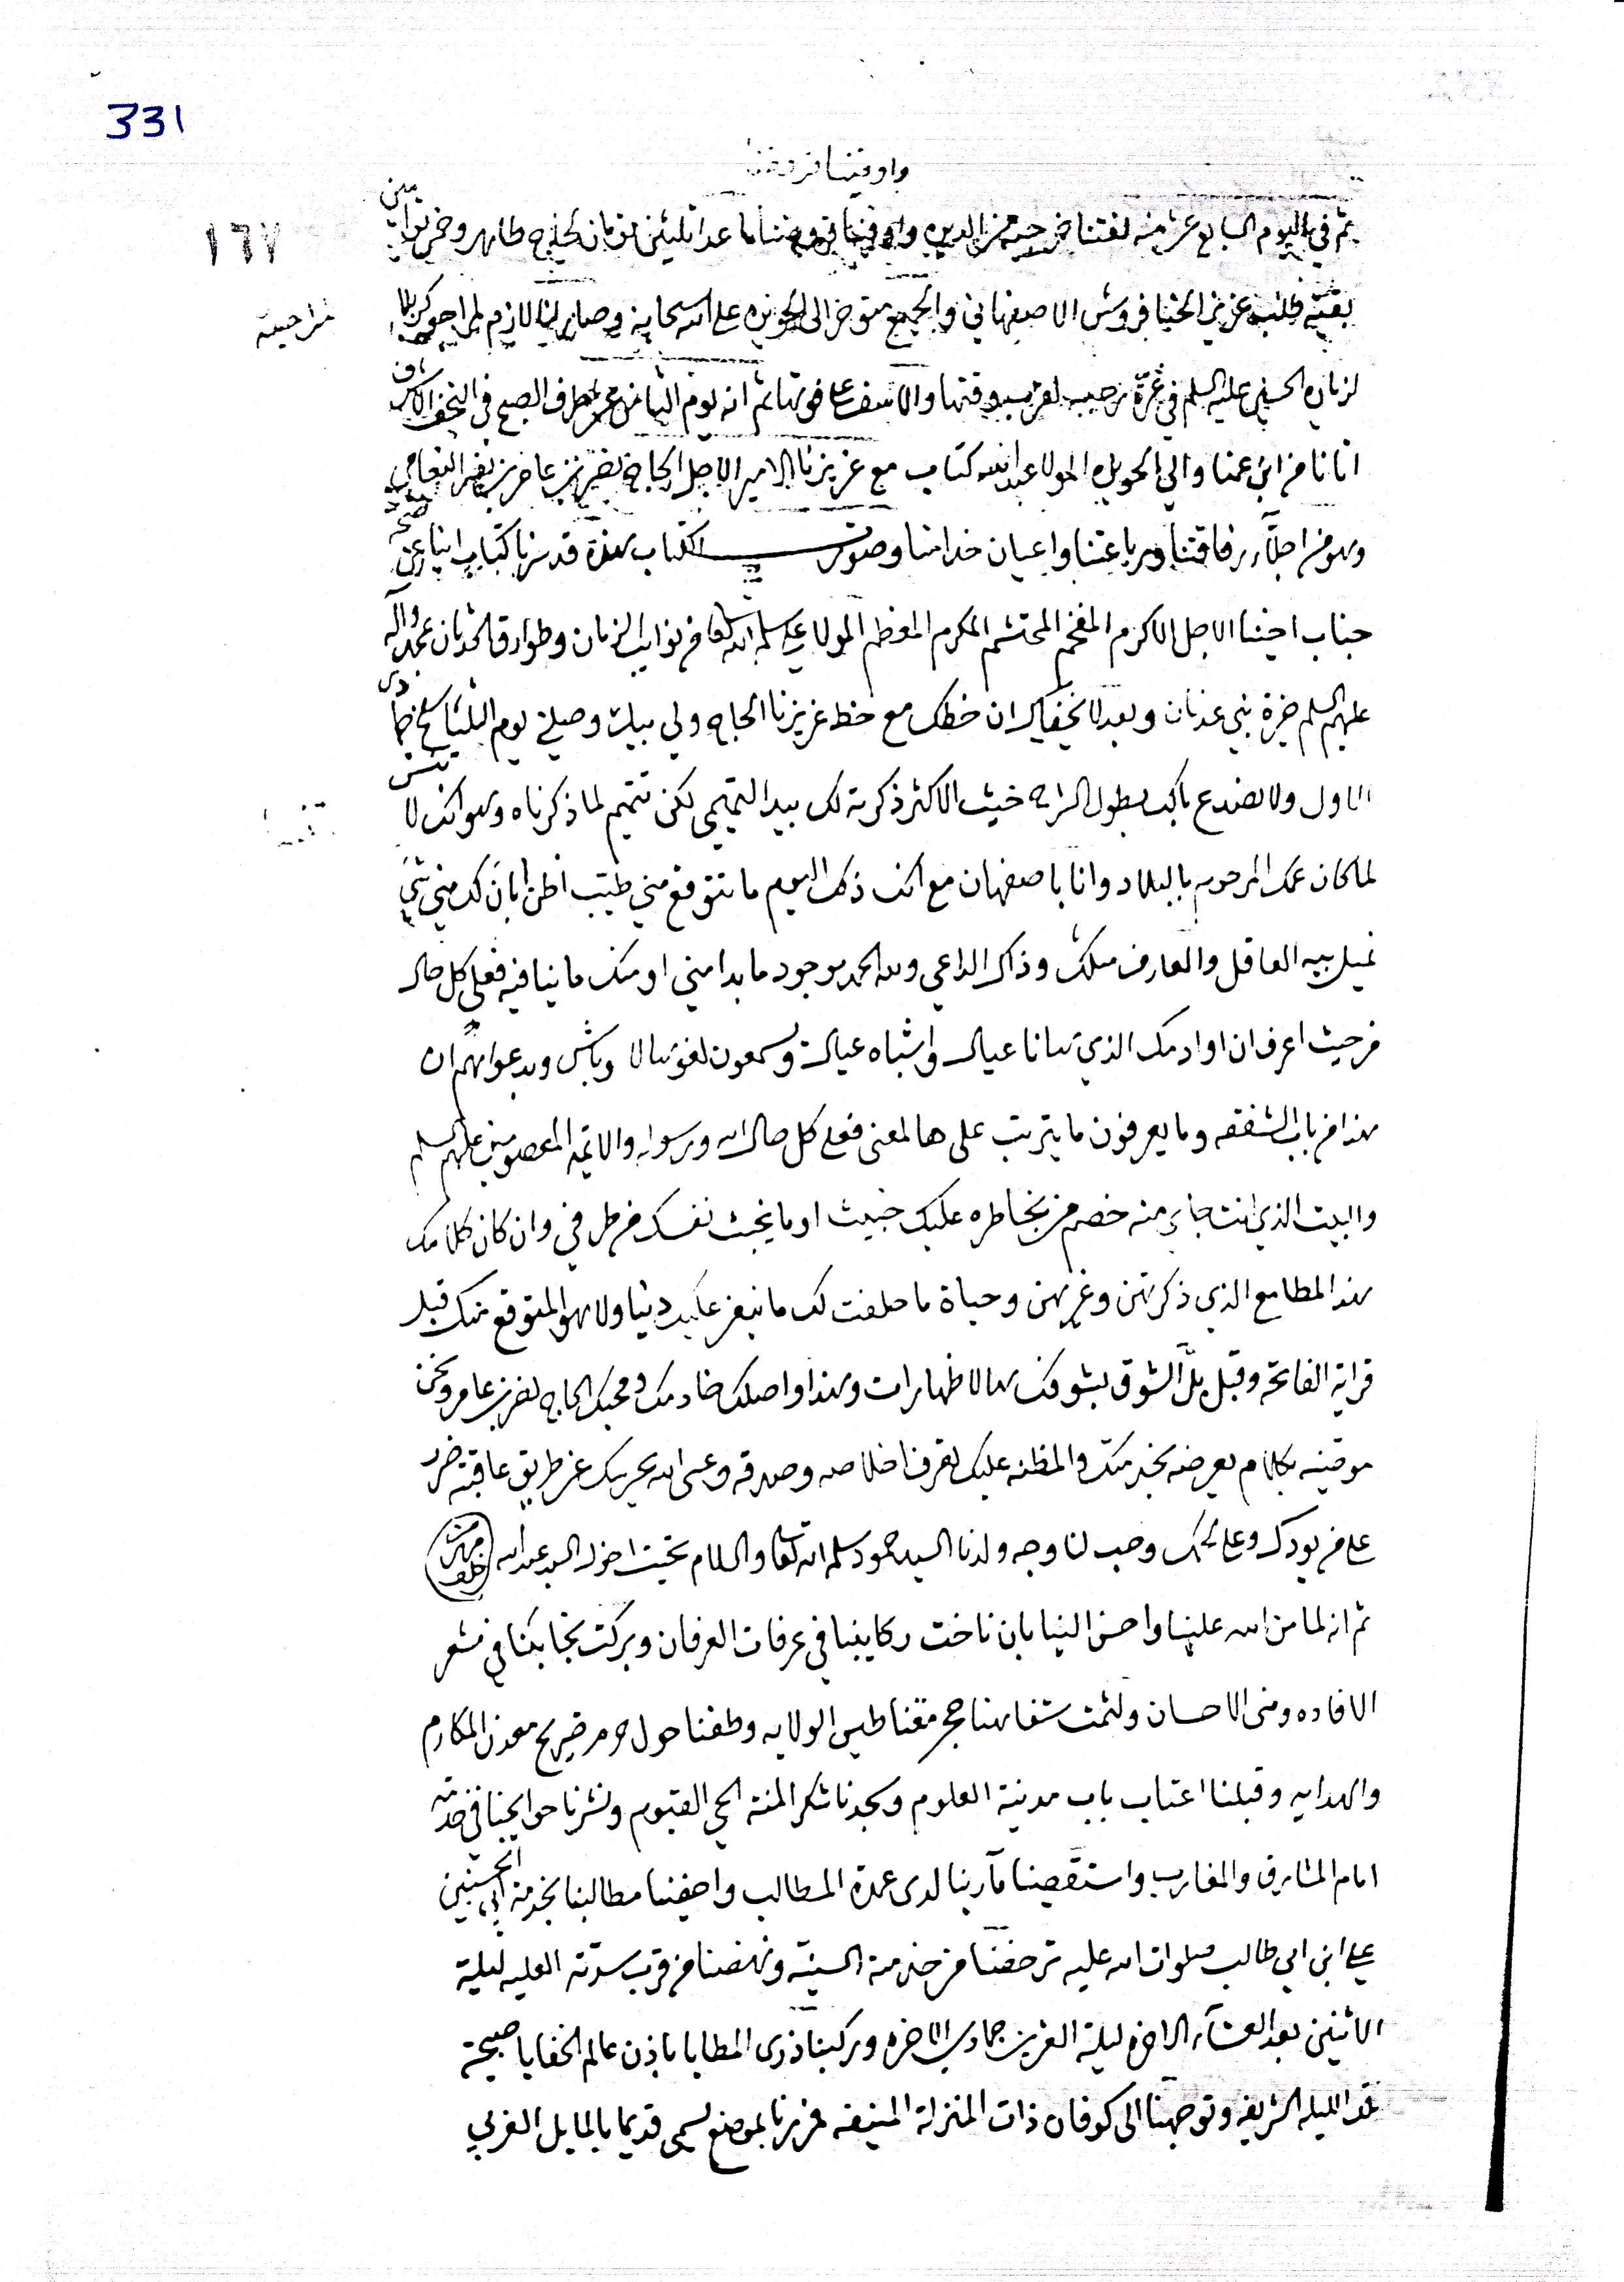 331
واوفينا قروضنا
١٦٧
ثم في اليوم السابع عشر منه لفتنا خرجية من الديره واوفينا قروضنا ما عدا ثلثين تومان لحاج طاهر وخمس توامين
بقيّة طلب عزيزي الحنا فروش الاصفهاني والجميع متوخر الى الحويزه على الله سبحانه وصار لنا لازم لمراجعة كربلا
مراجعة
لزيارة الحسين عليه السلم في غرّة رجب لقرب وقتها والاسف على فوتها ثم انه يوم الثامن عشر طرف الصبح في النجف الاشرف
اتانا من ابن عمنا والي الحويزه المولا عبد الله كتاب مع عزيزنا الامير الاجل الحاج نصر بن عامر بن نصر النعامي
وهو من اجلّاء رفاقتنا ورباعتنا واعيان خدامنا وصورت الكتاب هذه قد سرنا كتاب انبا عن صحة
جناب اخينا الاجل الاكرم المفخم المحتشم المكرم المعظم المولا علي سلمه الله تعالى من نوايب الزمان وطوارق الحدثان بمحمد وآله
عليهم السلم خيرة بني عدنان وبعد لا يخفاك ان خطك مع خط عزيزنا الحاج ولي بيك وصلني يوم الثلثا سلخ جمادى
الاول ولا نصدع بالك بطول الشرح حيث الاكثر ذكرته لك بيد التميمي لكن تتميم لما ذكرناه وهو انك لا تنسى
لما كان عمك المرحوم بالبلاد وانا باصفهان مع انك ذلك اليوم ما تتوقع مني طيّب اظن ابان لك مني شي
يميل بيه العاقل والعارف مثلك وذاك الداعي ولله الحمد موجود ما بدا مني او منك ما ينافيه فعلى كل حال
من حيث اعرف ان اوادمك الذي هنانا عيال واشباه عيال ويسمعون لغو الاوباش وبدعواهم ان
هذا من باب الشفقه وما يعرفون ما يترتب على هالمعنى فعلى كل حال الله ورسوله والائمة المعصومين عليهم السلم
والبيت الذي انت جاي منه خصم من بخاطره عليك خبيث او ما يخبث نفسك من طرفي وان كان كلامك
بهذا المطامع الذي ذكرتهن وغيرهن وحياة ما حلفت لك ما نبغز عليك دنيا ولا هو المتوقع منك قبل
قراية الفاتحة وقبل بلّ الشوق بشوفك هالاظهارات وهذا واصلك خادمك ومحبك الحاج نصر بن عامر ونحن
موصينه بكلام يعرضه بخدمتك والمظنه عليك تعرف اخلاصه وصدقه وعسى الله يحريك عن طريق عاقبته ضرر
على من يودك وعلى محبك وحب لنا وجه ولدنا السيد حمود سلمه الله تعالى والسلام تحيت اخوك السيد عبد الله
ثم انه لما من الله علينا واحسن الينا بان ناخت ركايبنا في عرفات العرفان وبركت نجايبنا في مشعر
الافاده ومنى الاحسان ولثمت شفاهنا حجر مقناطيس الولايه وطفنا حول حرم ضريح معدن المكارم
والهدايه وقبلنا اعتاب باب مدينة العلوم وسجدنا شكر المنة الحي القيوم ونشرنا حوايجنا في خدمته
امام المشارق والمغارب واستقصينا مآربنا لدى عمدة المطالب واصفينا مطالبنا بخدمة ابي الحسنين
علي ابن ابي طالب صلوات الله عليه ترخصنا من خدمته السنيّه ونهضنا من قرب سدّته العليه ليلة
الاثنين بعد العشاء الاخره ليلة العشرين جمادى الاخره وركبنا ذرى المطايا باذن عالم الخفايا صبيحة
تلك الليله الشريفه وتوجهنا الى كوفان ذات المنزلة المنيفه فمررنا بموضع يسمى قديما بالمايل الغربي